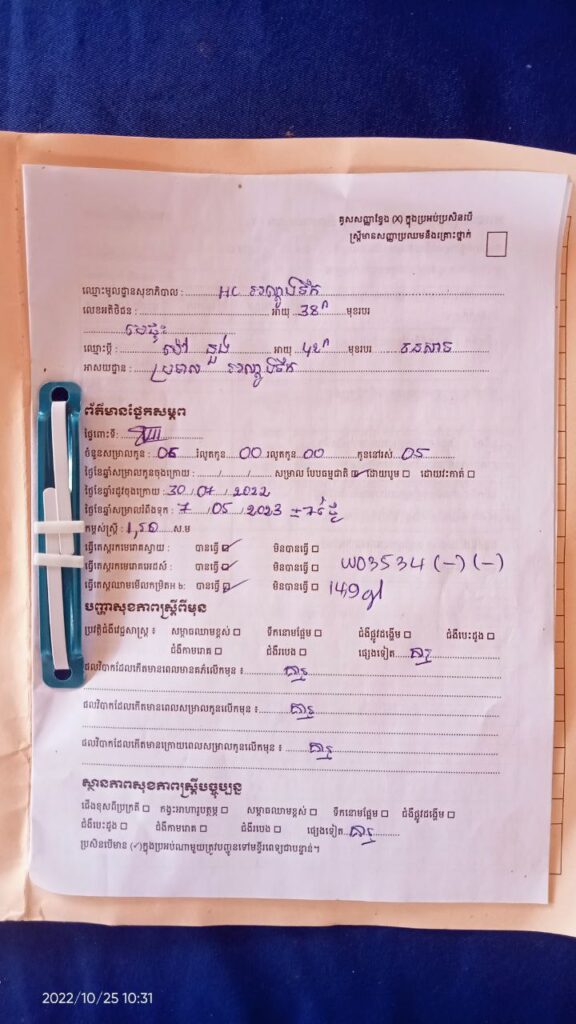 គូសសញ្ញាខ្វែង (X) ក្នុងប្រអប់ប្រសិនបើ
ស្ត្រីមានសញ្ញាប្រឈមនឹងគ្រោះថ្នាក់
ឈ្មោះមូលដ្ឋានសុខាភិបាល : HC
លេខអតិថិជន : អាយុ 38ឆ្នាំ មុខរបរ
មេផ្ទះ
ឈ្មោះប្តី : អាយុ 42ឆ្នាំ មុខរបរ
អាសយដ្ឋាន :
ព័ត៌មានផ្នែកសម្ភព
ថ្ងៃពោះទី: VIII
ចំនួនសម្រាលកូន : 05 រំលូតកូន 00 រលូតកូន 00 កូននៅរស់ 05
ថ្ងៃខែឆ្នាំសម្រាលកូនចុងក្រោយ : / / សម្រាល បែបធម្មជាតិ ☑ ដោយបូម ☐ ដោយវះកាត់ ☐
ថ្ងៃខែឆ្នាំរដូវចុងក្រោយ : 30 / 07 / 2022
ថ្ងៃខែឆ្នាំសម្រាលរំពឹងទុក : 7 / 05 / 2023 ±7ថ្ងៃ
កម្ពស់ស្ត្រី : 1,50 ស.ម
ធ្វើតេស្តរកមេរោគស្វាយ : បានធ្វើ ☑ មិនបានធ្វើ ☐
ធ្វើតេស្តរកមេរោគអេដស៍ : បានធ្វើ ☑ មិនបានធ្វើ ☐ W03534 (-) (-)
ធ្វើតេស្តឈាមមើលកម្រិតH b: បានធ្វើ ☑ មិនបានធ្វើ ☐ 149gl
បញ្ហាសុខភាពស្ត្រីពីមុន
ប្រវត្តិជំងឺវេជ្ជសាស្ត្រ : សម្ពាធឈាមខ្ពស់ ☐ ទឹកនោមផ្អែម ☐ ជំងឺផ្លូវដង្ហើម ☐ ជំងឺបេះដូង ☐
ជំងឺកាមរោគ ☐ ជំងឺរបេង ☐ ផ្សេងទៀត គ្មាន
ផលវិបាកដែលកើតមានពេលមានគភ៌លើកមុន : គ្មាន
ផលវិបាកដែលកើតមានពេលសម្រាលកូនលើកមុន : គ្មាន
ផលវិបាកដែលកើតមានក្រោយពេលសម្រាលកូនលើកមុន : គ្មាន
ស្ថានភាពសុខភាពស្ត្រីបច្ចុប្បន្ន
ជើងខុសពីប្រក្រតី ☐ កង្វះអាហារូបត្ថម្ភ ☐ សម្ពាធឈាមខ្ពស់ ☐ ទឹកនោមផ្អែម ☐ ជំងឺផ្លូវដង្ហើម ☐
ជំងឺបេះដូង ☐ ជំងឺកាមរោគ ☐ ជំងឺរបេង ☐ ផ្សេងទៀត គ្មាន
ប្រសិនបើមាន (✓) ក្នុងប្រអប់ណាមួយត្រូវបញ្ជូនទៅមន្ទីរពេទ្យជាបន្ទាន់។
2022/10/25 10:31